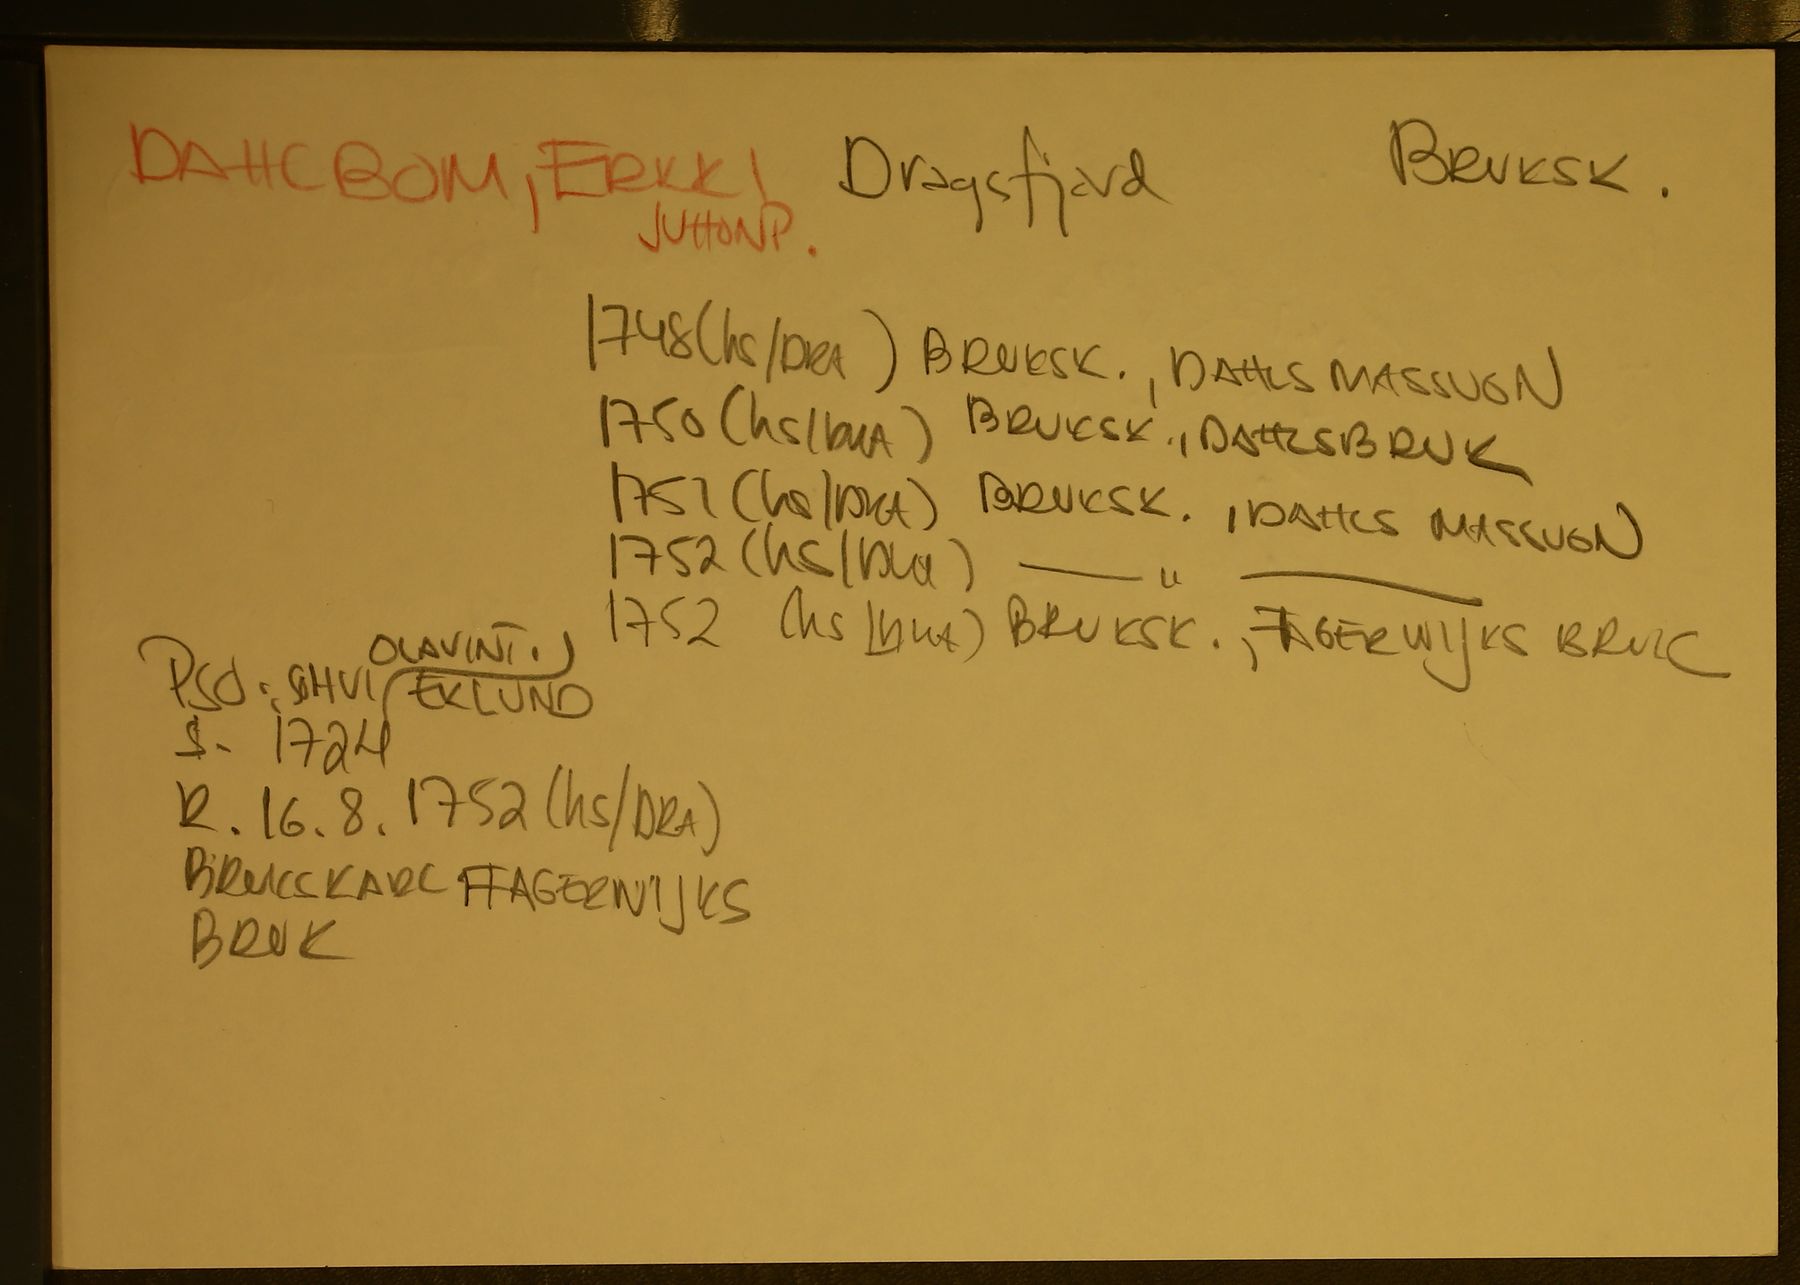 DAHLBOM, ERKKI Dragsfjärd BRUKSK.
JUHONP.
1748 (hs/DRA) BRUKSK., DAHLS MASSUGN
1750 (hs/DRA) BRUKSK., DAHLSBRUK
1751 (hs/DRA) BRUKSK., DAHLS MASSUGN
1752 (hs/DRA) —— " ——
1752 (hs/DRA) BRUKSK., FAGERWIJKS BRUK
OLAVINT.
PSO: EKLUND
S. 1724
R. 16.8.1752 (hs/DRA)
BRUKSKARL FAGERWIJKS
BRUK